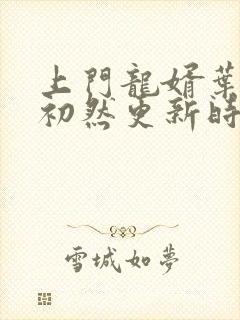 上門龍婿葉
初然更新時
雪城如夢